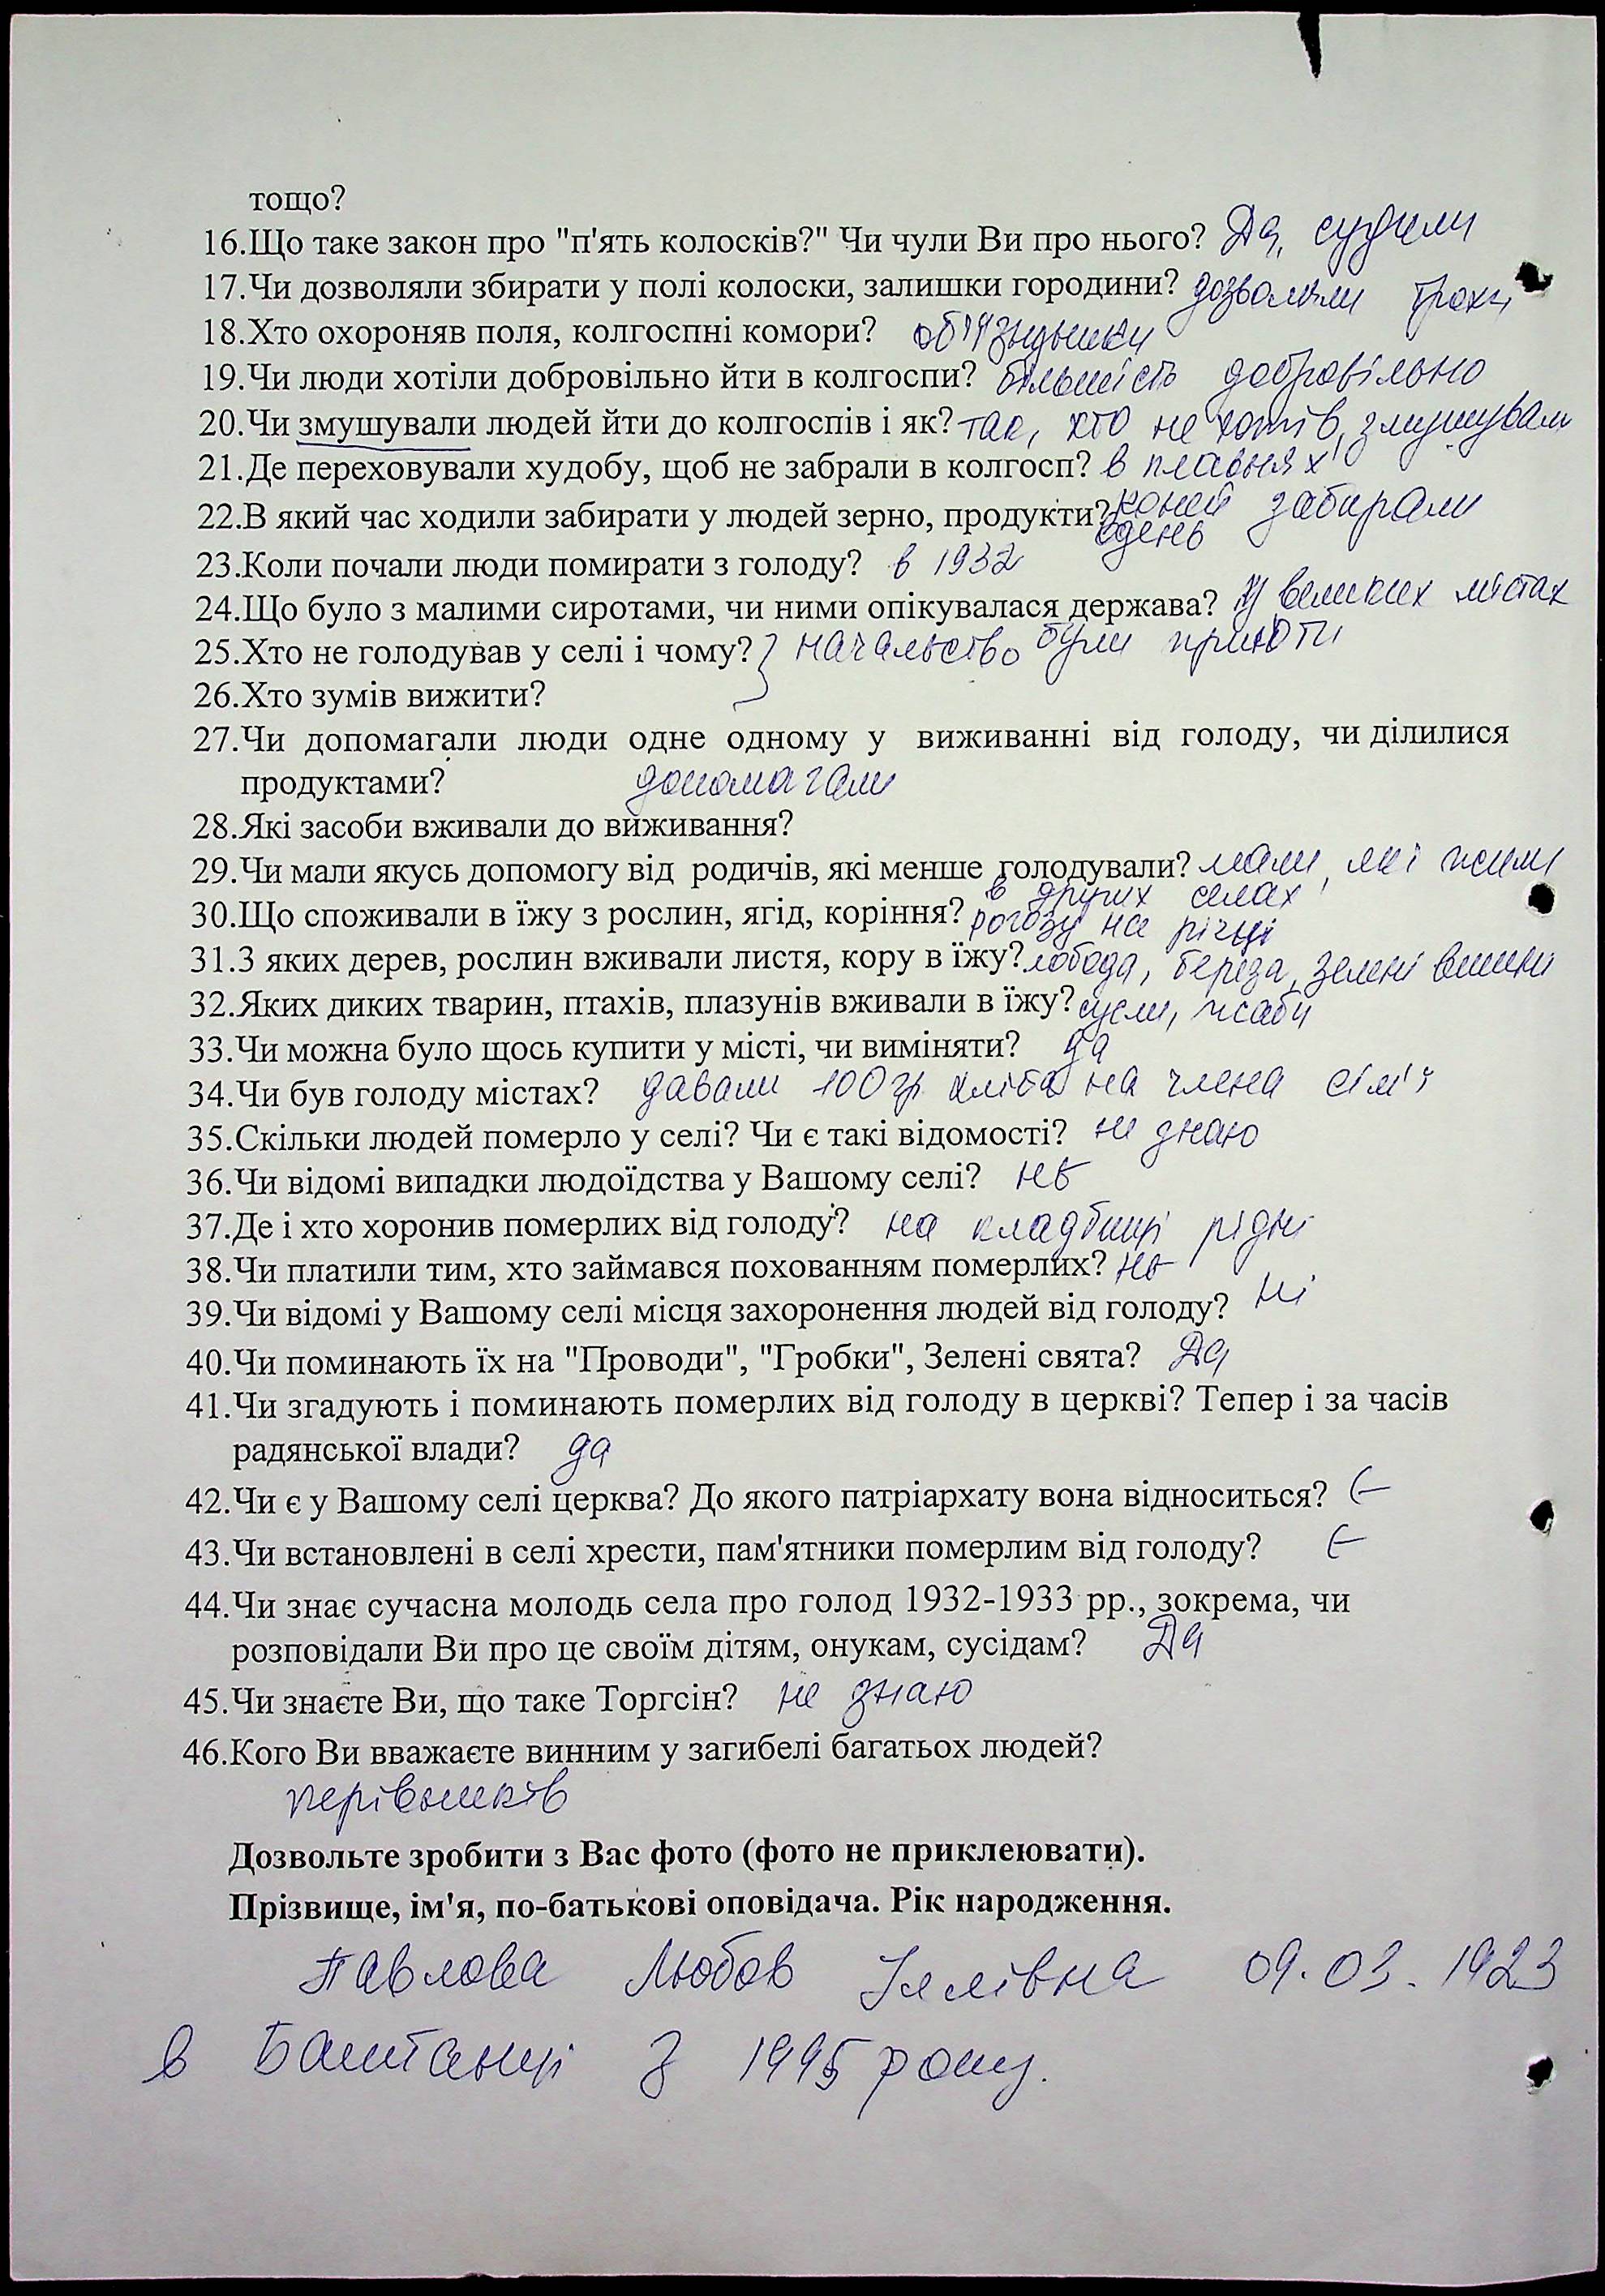 тощо?
16.Що таке закон про "п'ять колосків?" Чи чули Ви про нього? Да, судили
17.Чи дозволяли збирати у полі колоски, залишки городини? дозволяли трохи
18.Хто охороняв поля, колгоспні комори? об'їзчики
19.Чи люди хотіли добровільно йти в колгоспи? більшість добровільно
20.Чи змушували людей йти до колгоспів і як? так, хто не хотів, змушували
21.Де переховували худобу, щоб не забрали в колгосп? в плавнях
коней забирали
22.В який час ходили забирати у людей зерно, продукти? вдень
23.Коли почали люди помирати з голоду? в 1932
24.Що було з малими сиротами, чи ними опікувалася держава? У великих містах
були приюти
25.Хто не голодував у селі і чому? } начальство
26.Хто зумів вижити?
27.Чи допомагали люди одне одному у виживанні від голоду, чи ділилися
продуктами? допомагали
28.Які засоби вживали до виживання?
29.Чи мали якусь допомогу від родичів, які менше голодували? мали, які жили
в других селах
30.Що споживали в їжу з рослин, ягід, коріння? рогозу на річці
31.З яких дерев, рослин вживали листя, кору в їжу? лобода, береза, зелені вишні
32.Яких диких тварин, птахів, плазунів вживали в їжу? сусли, жаби
33.Чи можна було щось купити у місті, чи виміняти? да
34.Чи був голоду містах? давали 100 гр хліба на члена сім'ї
35.Скільки людей померло у селі? Чи є такі відомості? не знаю
36.Чи відомі випадки людоїдства у Вашому селі? нє
37.Де і хто хоронив померлих від голоду? на кладбищі рідні
38.Чи платили тим, хто займався похованням померлих? нє
39.Чи відомі у Вашому селі місця захоронення людей від голоду? ні
40.Чи поминають їх на "Проводи", "Гробки", Зелені свята? Да
41.Чи згадують і поминають померлих від голоду в церкві? Тепер і за часів
радянської влади? да
42.Чи є у Вашому селі церква? До якого патріархату вона відноситься? Є
43.Чи встановлені в селі хрести, пам'ятники померлим від голоду? Є
44.Чи знає сучасна молодь села про голод 1932-1933 рр., зокрема, чи
розповідали Ви про це своїм дітям, онукам, сусідам? Да
45.Чи знаєте Ви, що таке Торгсін? не знаю
46.Кого Ви вважаєте винним у загибелі багатьох людей?
керівників
Дозвольте зробити з Вас фото (фото не приклеювати).
Прізвище, ім'я, по-батькові оповідача. Рік народження.
Павлова Любов Іллівна 09.03.1923
в Баштанці з 1995 року.